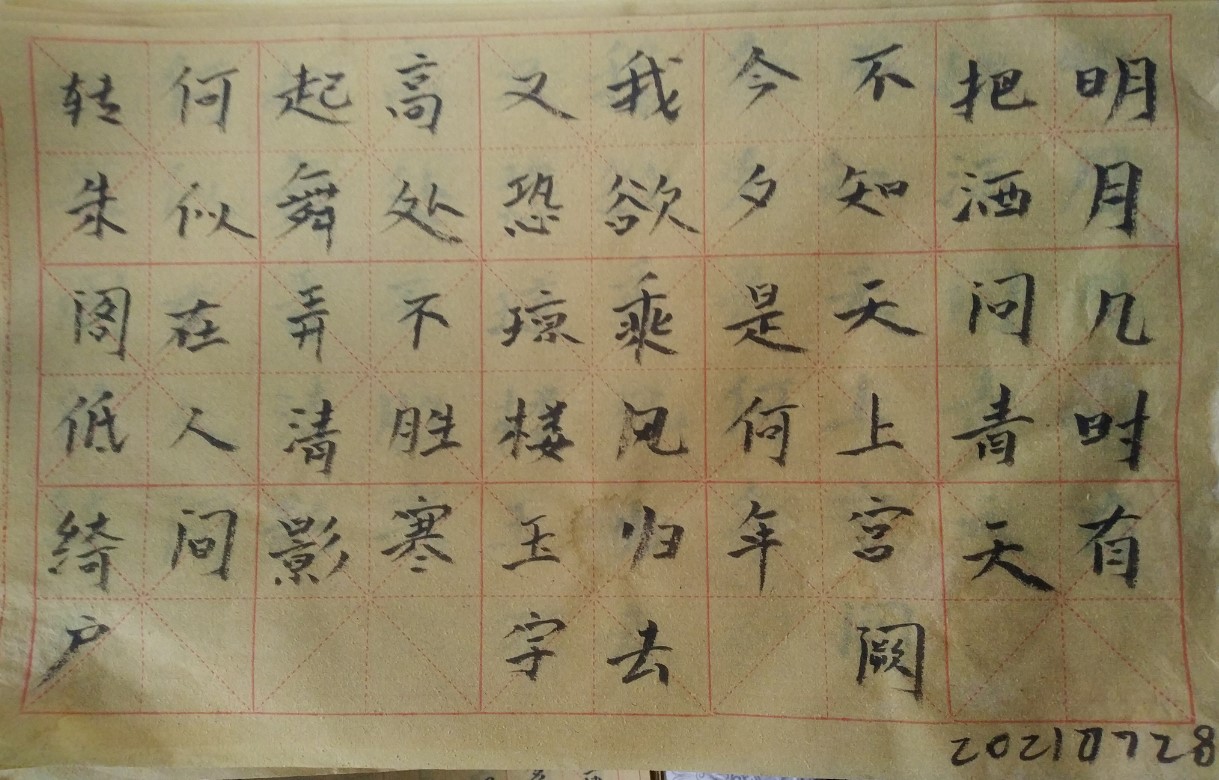 明月几时有
把洒问青天
不知天上宫阙
今夕是何年
我欲乘风归去
又恐琼楼玉宇
高处不胜寒
起舞弄清影
何似在人间
转朱阁低绮户
20210728